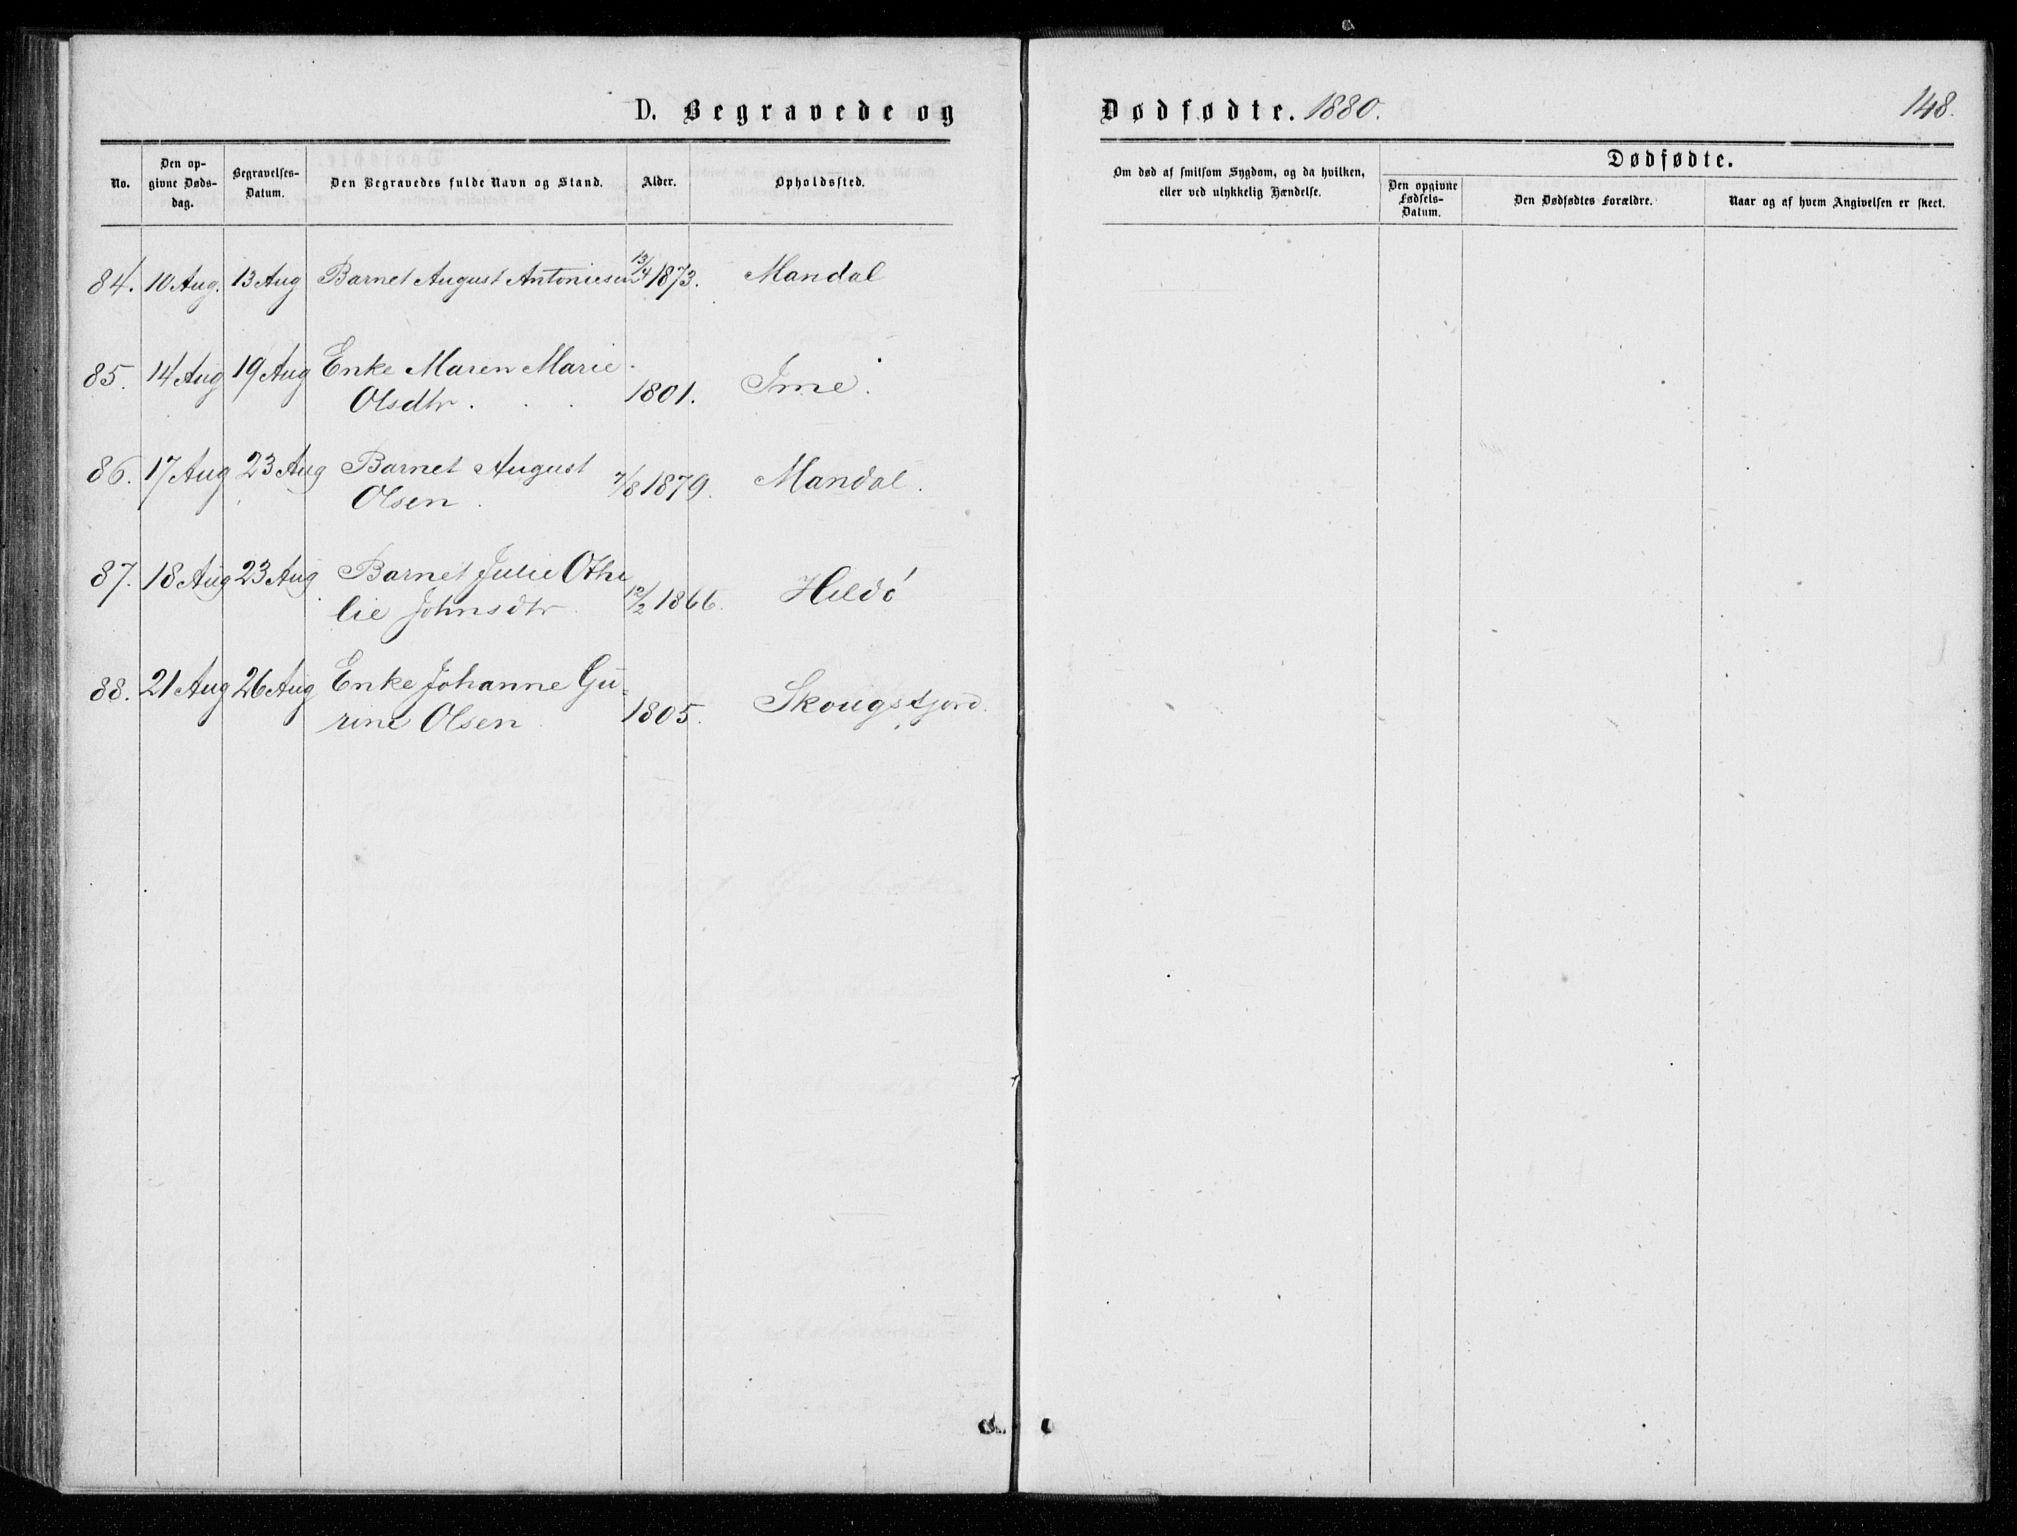 D. Begravede og Dødfødte. 1880.
148.
No.
Den op-
givne Døds-
dag.
Begravelses-
Datum.
Den Begravedes fulde Navn og Stand.
Alder.
Opholdssted.
Om død af smitsom Sygdom, og da hvilken,
eller ved ulykkelig Hændelse.
Dødfødte.
Den opgivne
Fødsels-
Datum.
Den Dødfødtes Forældre.
Naar og af hvem Angivelsen er skeet.
84. 10 Aug. 13 Aug Barnet August Antoniesen 13/4 1873. Mandal
85. 14 Aug 19 Aug Enke Maren Marie
Olsdtr. 1801. Ime.
86. 17 Aug 23 Aug Barnet August
Olsen. 7/8 1879. Mandal.
87. 18 Aug 23 Aug Barnet Julie Othi
lie Johnsdtr 12/2 1866. Hildø
88. 21 Aug 26 Aug Enke Johanne Gu-
rine Olsen 1805. Skougsfjord.